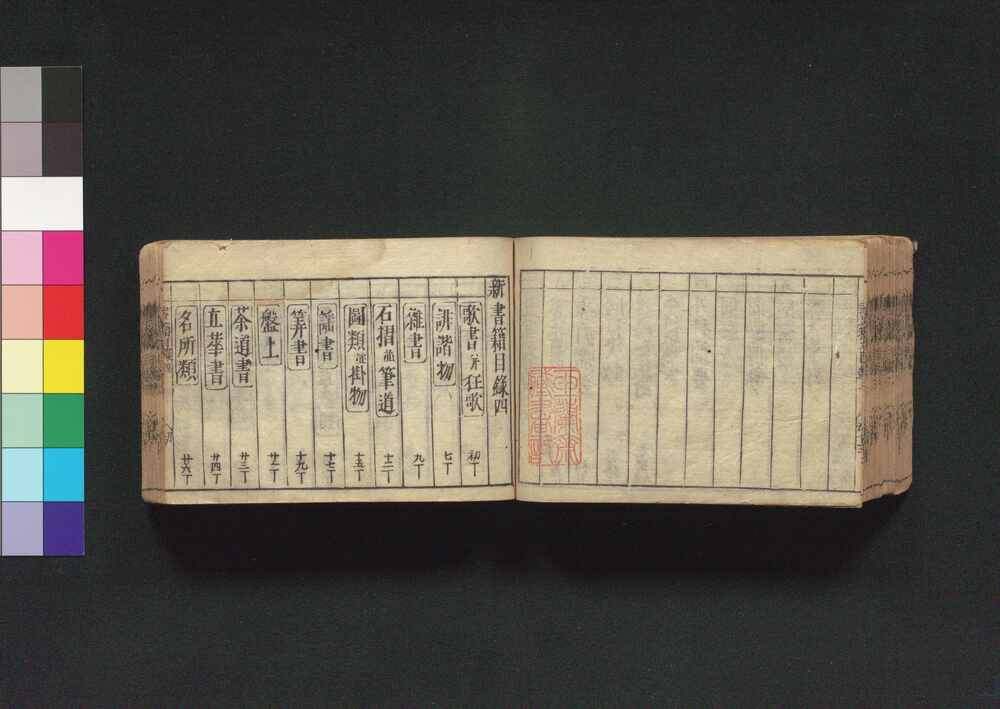 新書籍目録四
歌書 并 狂歌 初丁
誹諧物 七丁
雑書 九丁
石摺 並 筆道 十二丁
圖類 並 掛物 十五丁
謡書 十七丁
筭書 十九丁
盤上 廿一丁
茶道書 廿三丁
立華書 廿四丁
名所類 廿六丁